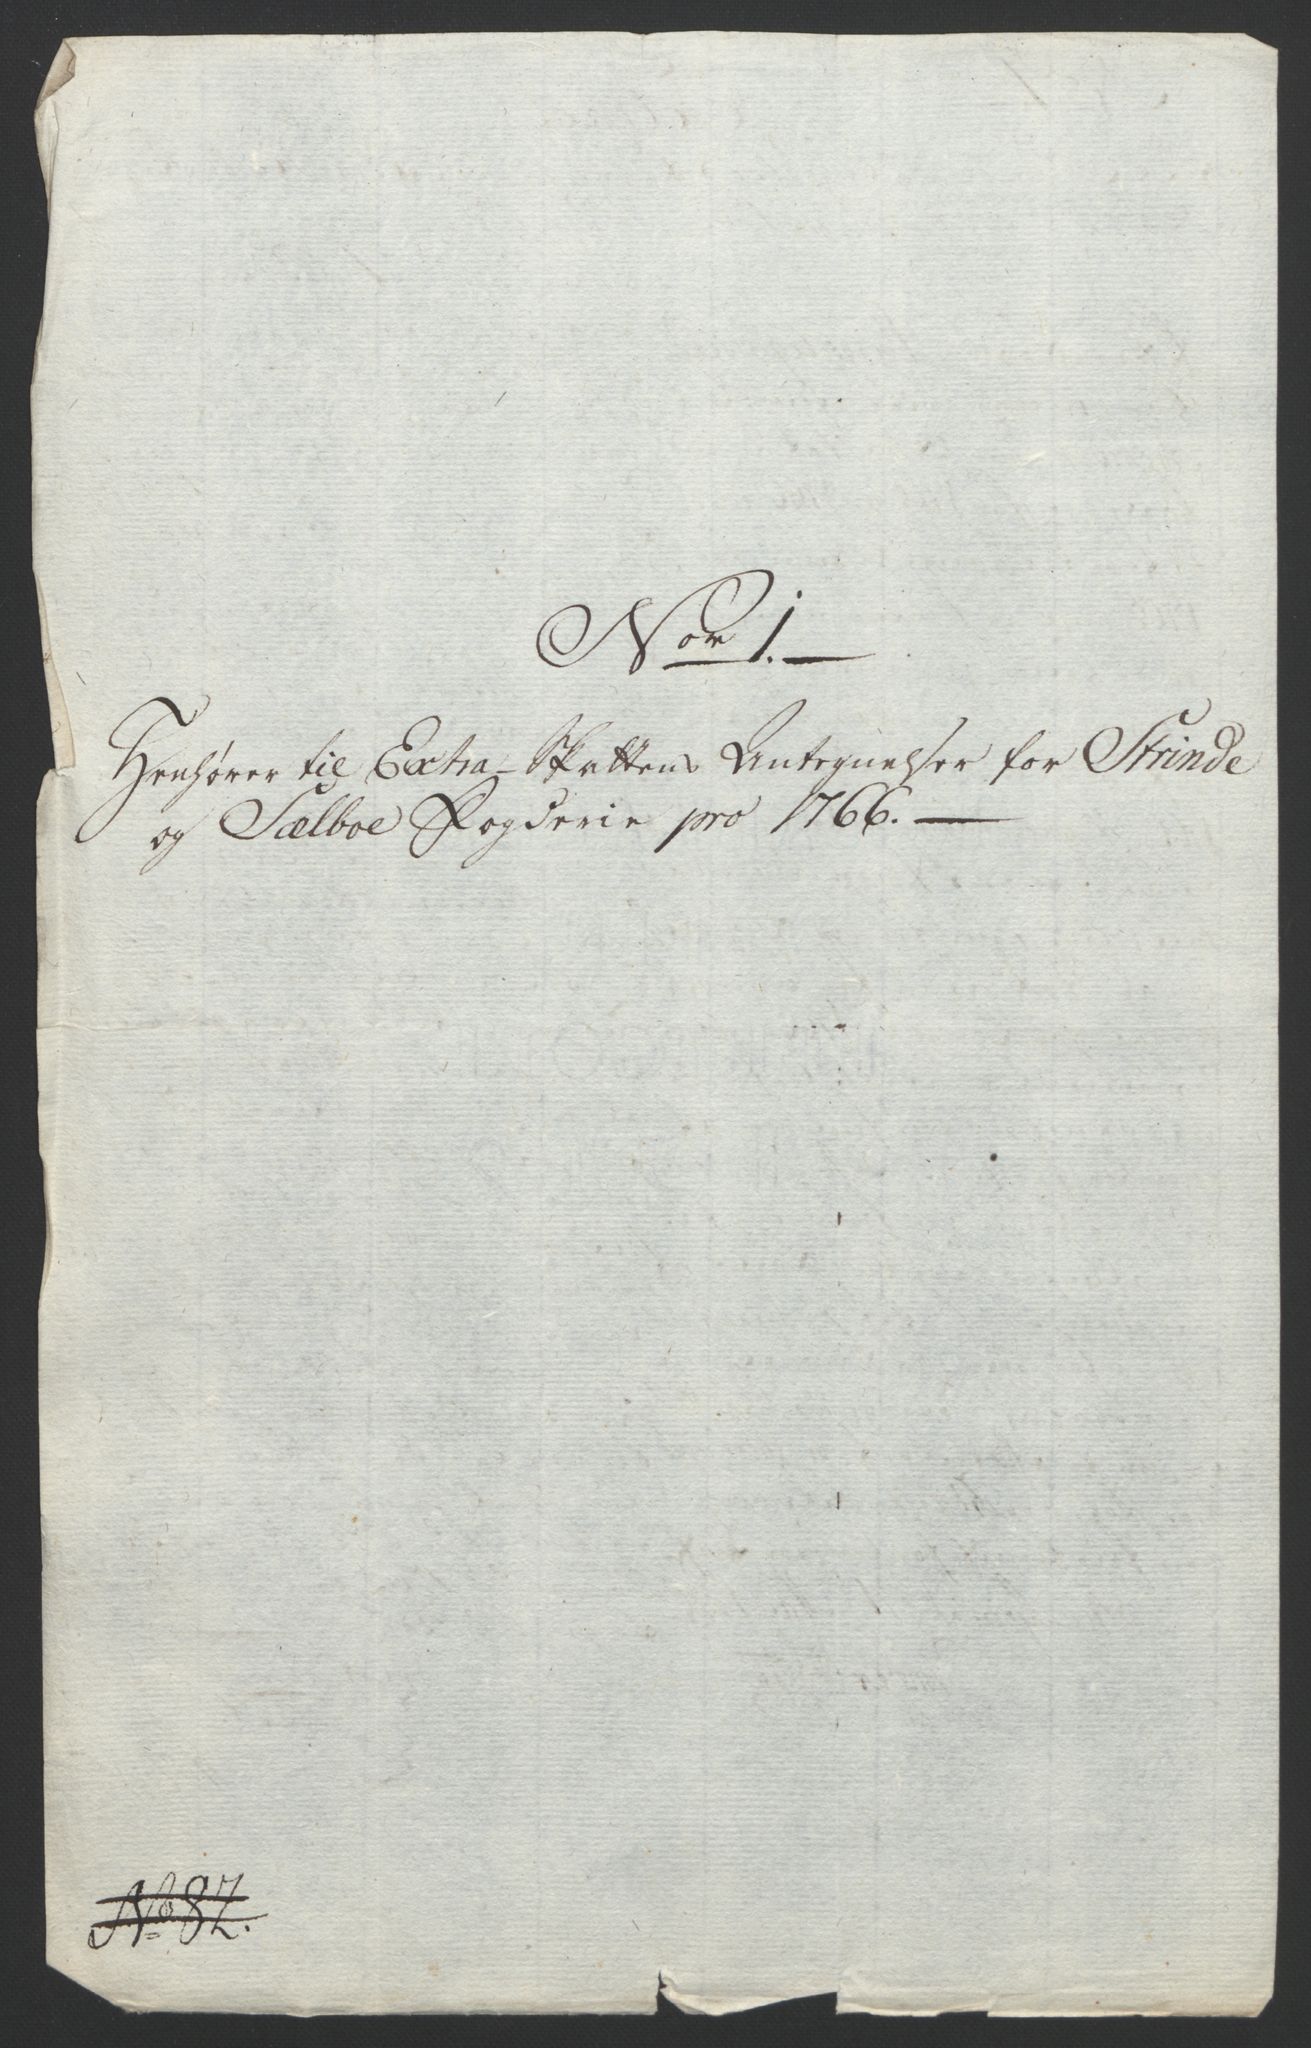 Nor 1.
Henhører til Extra-Skattens Antegnelser for Strinde
og Sælboe Fogderie pro 1766.
No 82.